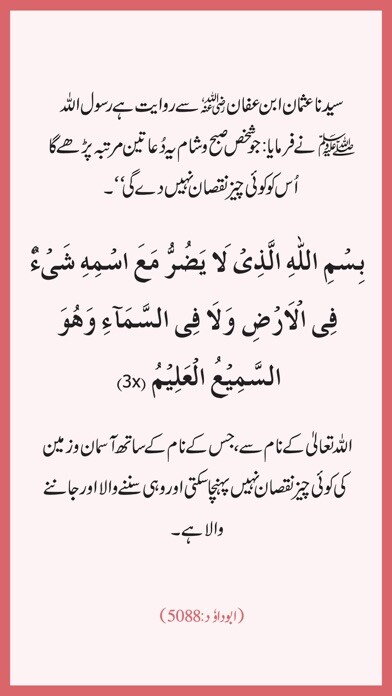 سیدنا عثمان ابن عفان رضی اللہ عنہ سے روایت ہے رسول اللہ
ﷺ نے فرمایا: جو شخص صبح و شام یہ دُعا تین مرتبہ پڑھے گا
اُس کو کوئی چیز نقصان نہیں دے گی‘‘۔
بِسْمِ اللّٰهِ الَّذِیْ لَا یَضُرُّ مَعَ اسْمِهٖ شَیْءٌ
فِی الْاَرْضِ وَلَا فِی السَّمَآءِ وَهُوَ
السَّمِیْعُ الْعَلِیْمُ (3x)
اللہ تعالیٰ کے نام سے، جس کے نام کے ساتھ آسمان و زمین
کی کوئی چیز نقصان نہیں پہنچا سکتی اور وہی سننے والا اور جاننے
والا ہے۔
(ابوداؤد:5088)